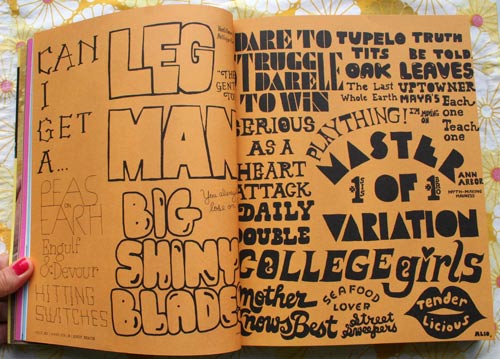 CAN
I
GET
A...
PEAS
ON
EARTH
Engulf
& Devour
HITTING
SWITCHES
LEG
MAN
"THE
GENT
You always
lose on
BIG
SHINY
BLADE
DARE TO
STRUGGLE
DARE
TO WIN
TUPELO
TITS
OAK
The Last
Whole Earth
TRUTH
BE TOLD
LEAVES
UPTOWNER
MAYA'S
Each
one
Teach
one
PLAYTHING!
I'M MOVING ON
SERIOUS
AS A
HEART
ATTACK
DAILY
DOUBLE
MASTER
1 OF 1
VARIATION
ANN
ARBOR
MYTH-MAKING
MADNESS
COLLEGE girls
Mother
Knows Best
SEAFOOD
LOVER
Street
Sweepers
Tender
Licious